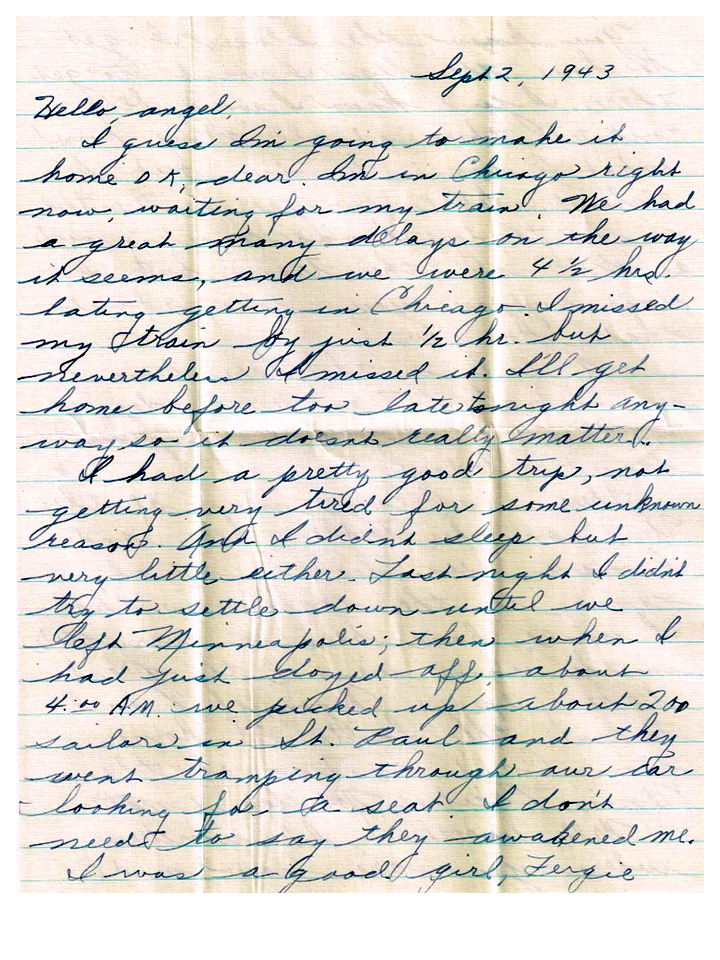 Sept 2, 1943
Hello, angel,
I guess I'm going to make it
home O.K., dear. I'm in Chicago right
now, waiting for my train. We had
a great many delays on the way
it seems, and we were 4 1/2 hrs.
lating getting in Chicago. I missed
my train by just 1/2 hr. but
nevertheless I missed it. I'll get
home before too late tonight any-
way so it doesn't really matter.
I had a pretty good trip, not
getting very tired for some unknown
reason. And I didn't sleep but
very little either. Last night I didn't
try to settle down until we
left Minneapolis; then when I
had just dozed off about
4:00 A.M. we picked up about 200
sailors in St. Paul and they
went tramping through our car
looking for a seat. I don't
need to say they awakened me.
I was a good girl, Fergie